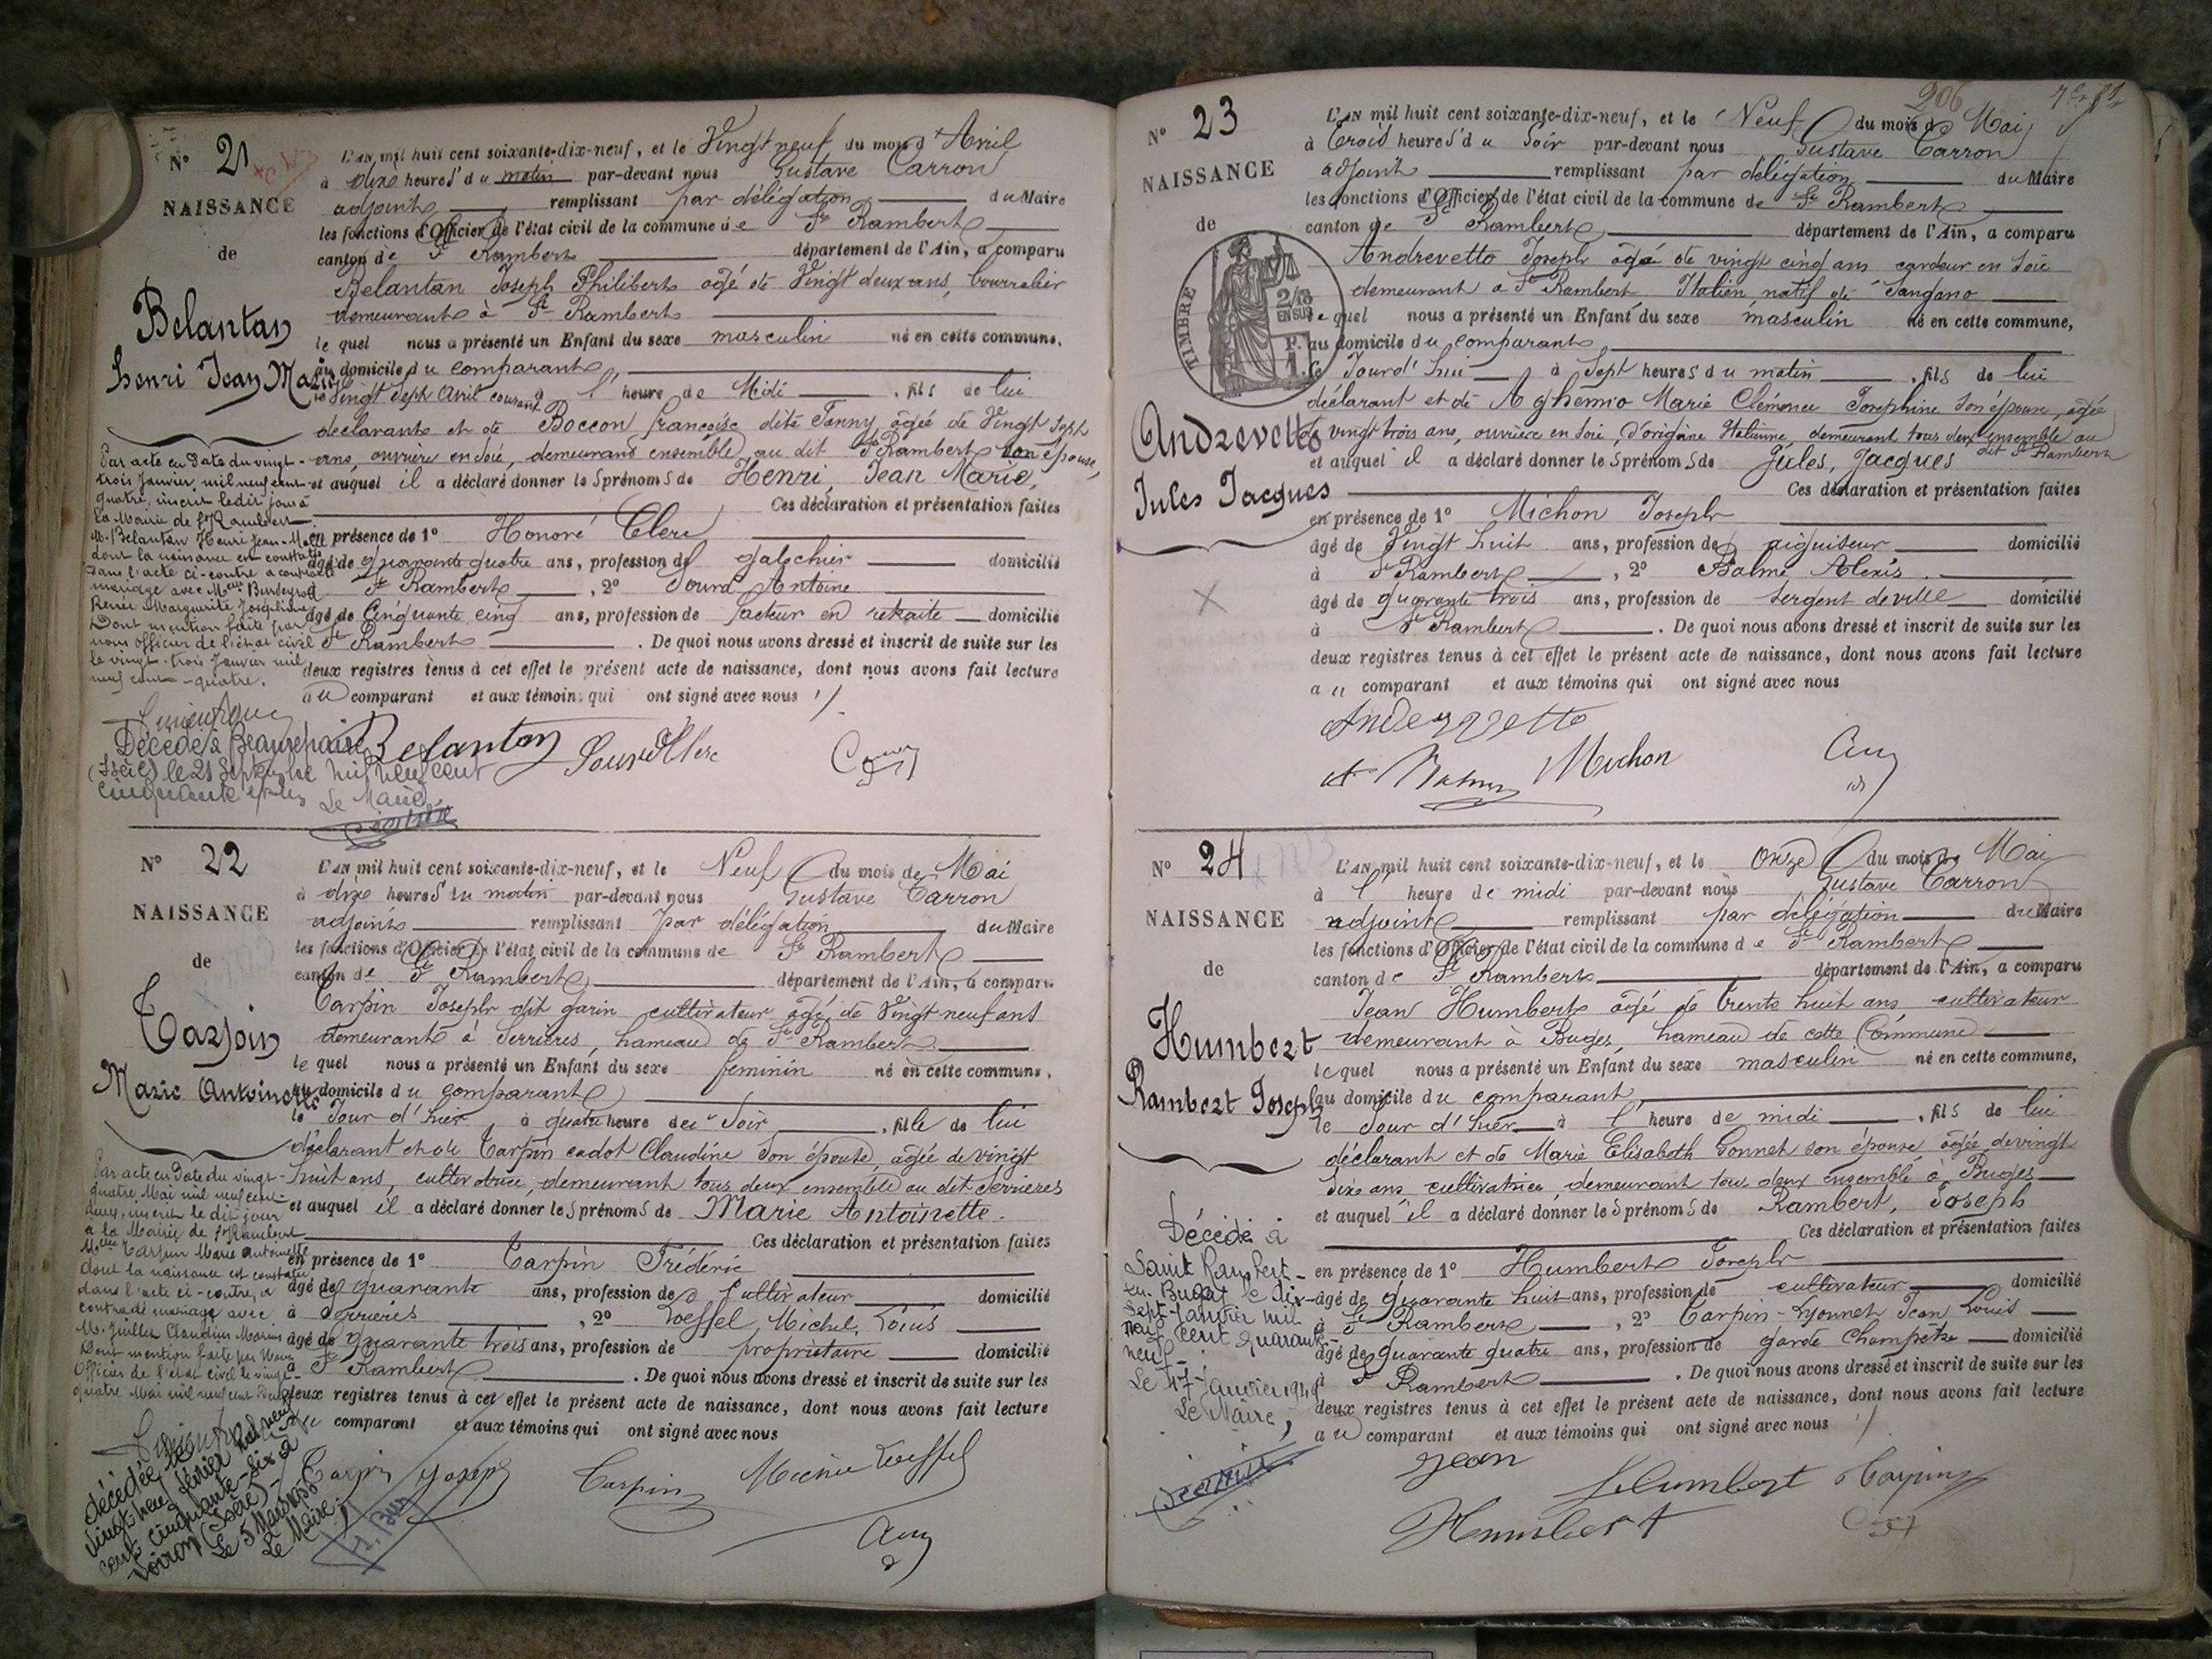 N° 21
NAISSANCE
de
Belantan
Henri Jean Marie
L'AN mil huit cent soixante-dix-neuf, et le Vingt neuf du mois d'Avril
à dix heures du matin par-devant nous Gustave Carron
adjoint remplissant par délégation du Maire
les fonctions d'Officier de l'état civil de la commune de St Rambert
canton de St Rambert département de l'Ain, a comparu
Belantan Joseph Philibert agé de Vingt deux ans, bourrelier
demeurant à St Rambert
le quel nous a présenté un Enfant du sexe masculin né en cette commune,
au domicile du comparant,
le Vingt Sept Avril courant à l'heure de Midi, fils de lui
déclarant et de Boccon françoise dite Fanny, agée de Vingt Sept
ans, ouvrière en soie, demeurant ensemble au dit St Rambert son épouse,
et auquel il a déclaré donner les prénoms de Henri, Jean Marie,
Ces déclaration et présentation faites
en présence de 1° Honoré Clerc
âgé de quarante quatre ans, profession de galochier domicilié
à St Rambert, 2° Sourd Antoine
âgé de Cinquante cinq ans, profession de facteur en retraite domicilié
à St Rambert. De quoi nous avons dressé et inscrit de suite sur les
deux registres tenus à cet effet le présent acte de naissance, dont nous avons fait lecture
au comparant et aux témoins qui ont signé avec nous
Par acte en Date du vingt-
trois Janvier mil neuf cent
quatre, inscrit ledit jour à
la Mairie de St Rambert
M. Belantan Henri Jean-Marie
dont la naissance est constatée
dans l'acte ci-contre a contracté
mariage avec Melle
Renée Marguerite Joséphine
Dont mention faite par
nous officier de l'état civil
le vingt-trois Janvier mil
neuf cent-quatre.
Décédé à Beaurepaire
(Isère) le 21 Septembre mil neuf cent
cinquante
Le Maire
Belantan Sourd Clerc
N° 22
NAISSANCE
de
Tarpin
Marie Antoinette
L'AN mil huit cent soixante-dix-neuf, et le Neuf du mois de Mai
à dix heures du matin par-devant nous Gustave Carron
adjoint remplissant par délégation du Maire
les fonctions d'Officier de l'état civil de la commune de St Rambert
canton de St Rambert département de l'Ain, a comparu
Tarpin Joseph dit garin cultivateur agé de Vingt neuf ans
demeurant à Serrières, hameau de St Rambert
le quel nous a présenté un Enfant du sexe féminin né en cette commune,
au domicile du comparant
le Jour d'hier à quatre heure du Soir, fille de lui
déclarant et de Tarpin cadot Claudine Son épouse, agée de vingt
huit ans, cultivatrice, demeurant tous deux ensemble au dit Serrières
et auquel il a déclaré donner les prénoms de Marie Antoinette.
Ces déclaration et présentation faites
en présence de 1° Tarpin Fréderic
âgé de quarante ans, profession de Cultivateur domicilié
à Serrières, 2° Loeffel, Michel, Louis
âgé de quarante trois ans, profession de propriétaire domicilié
à St Rambert. De quoi nous avons dressé et inscrit de suite sur les
deux registres tenus à cet effet le présent acte de naissance, dont nous avons fait lecture
au comparant et aux témoins qui ont signé avec nous
Par acte en Date du vingt-
quatre Mai mil neuf cent-
deux, inscrit le dit jour
à la Mairie de St Rambert
Melle Tarpin Marie Antoinette
dont la naissance est constatée
dans l'acte ci-contre, a
contracté mariage avec
M. Juillet Claudius Marius
Dont mention faite par Nous
Officier de l'état civil le vingt-
quatre Mai mil neuf cent deux
décédée le
vingt neuf février mil neuf
cent cinquante-six à
Voiron (Isère)
Le 5 Mars 1956
Le Maire,
Tarpin Joseph Tarpin Michel Loeffel
206
N° 23
NAISSANCE
de
TIMBRE
2/10
EN SUS
Andrevetto
Jules Jacques
L'AN mil huit cent soixante-dix-neuf, et le Neuf du mois de Mai
à trois heures du Soir par-devant nous Gustave Carron
adjoint remplissant par délégation du Maire
les fonctions d'Officier de l'état civil de la commune de St Rambert
canton de St Rambert département de l'Ain, a comparu
Andrevetto Joseph agé de vingt cinq ans cardeur en Soie
demeurant à St Rambert, Italien, natif de Sangano
le quel nous a présenté un Enfant du sexe masculin né en cette commune,
au domicile du comparant
ce Jourd'hui à Sept heures du matin, fils de lui
déclarant et de Aghemio Marie Clémence Josephine Son épouse, agée
de vingt trois ans, ouvrière en Soie, d'origine Italienne, demeurant tous deux ensemble au
dit St Rambert
et auquel il a déclaré donner les prénoms de Jules, Jacques
Ces déclaration et présentation faites
en présence de 1° Michon Joseph
âgé de Vingt huit ans, profession de aiguiseur domicilié
à St Rambert, 2° Balme Alexis.
âgé de quarante trois ans, profession de Sergent de ville domicilié
à St Rambert. De quoi nous avons dressé et inscrit de suite sur les
deux registres tenus à cet effet le présent acte de naissance, dont nous avons fait lecture
au comparant et aux témoins qui ont signé avec nous
Andrevetto
Michon
N° 24
NAISSANCE
de
Humbert
Rambert Joseph
L'AN mil huit cent soixante-dix-neuf, et le Onze du mois de Mai
à l'heure de midi par-devant nous Gustave Carron
adjoint remplissant par délégation du Maire
les fonctions d'Officier de l'état civil de la commune de St Rambert
canton de St Rambert département de l'Ain, a comparu
Jean Humbert agé de trente huit ans, cultivateur
demeurant à Buges, hameau de cette Commune
lequel nous a présenté un Enfant du sexe masculin né en cette commune,
au domicile du comparant,
le Jour d'hier à l'heure de midi, fils de lui
déclarant et de Marie Elisabeth Gonnet son épouse, agée de vingt
Six ans, cultivatrice, demeurant tous deux ensemble à Buges
et auquel il a déclaré donner les prénoms de Rambert, Joseph
Ces déclaration et présentation faites
en présence de 1° Humbert Joseph
âgé de quarante huit ans, profession de cultivateur domicilié
à St Rambert, 2° Tarpin-Lyonnet Jean Louis
âgé de quarante quatre ans, profession de garde Champêtre domicilié
à St Rambert. De quoi nous avons dressé et inscrit de suite sur les
deux registres tenus à cet effet le présent acte de naissance, dont nous avons fait lecture
au comparant et aux témoins qui ont signé avec nous
Décédé à
Saint Rambert-
en-Bugey le dix-
sept-Janvier mil
neuf cent quarante-
neuf
Le 17 janvier 1949
Le Maire,
Jean
Humbert Tarpin
Humbert